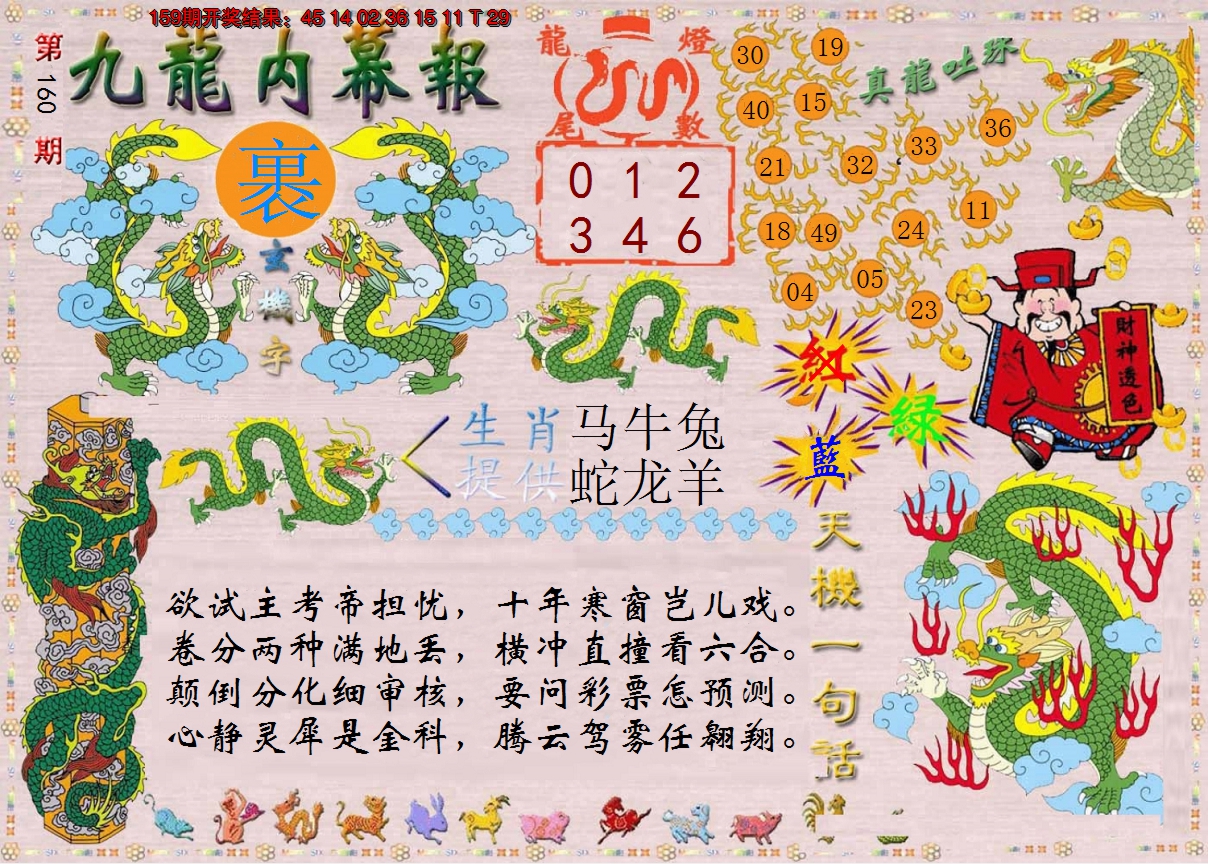 159期开奖结果：45 14 02 36 15 11 T 29
第160期
九龍内幕報
裹
玄機字
龍燈
尾數
0 1 2
3 4 6
真龍吐珠
30 19
40 15
33 36
21 32
18 49 24 11
04 05 23
財神透色
紅
綠
藍
生肖 马牛兔
提供 蛇龙羊
天機一句話
欲试主考帝担忧，十年寒窗岂儿戏。
卷分两种满地丢，横冲直撞看六合。
颠倒分化细审核，要问彩票怎预测。
心静灵犀是金科，腾云驾雾任翱翔。